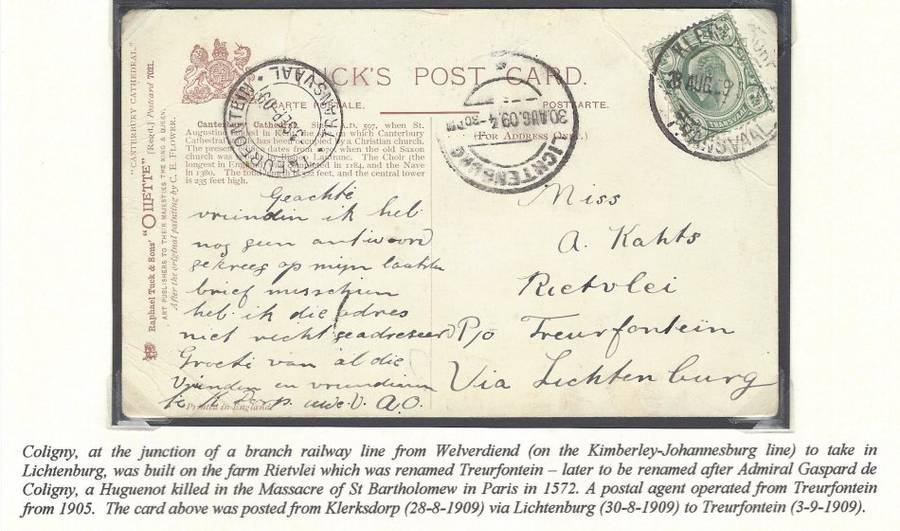 "CANTERBURY CATHEDRAL."
Raphael Tuck & Sons' "OILETTE" [Regd.] Postcard 7021.
ART PUBLISHERS TO THEIR MAJESTIES THE KING & QUEEN.
After the original painting by C. E. FLOWER.
TUCK'S POST CARD.
CARTE POSTALE.
(For Address Only.)
TREURFONTEIN
TRANSVAAL
3 SEP 09
LICHTENBURG
30 AUG. 09 4-30 PM
28 AUG 09
TRANSVAAL
Canterbury Cathedral. Since A.D. 597, when St.
Augustine landed in Kent, the site on which Canterbury
Cathedral stands has been occupied by a Christian church.
The present dates from 1070, when the old Saxon
church was by Lanfranc. The Choir (the
longest in England) completed in 1184, and the Nave
in 1380. The total feet, and the central tower
is 235 feet high.
Geachte
vriendin ik heb
nog geen antwoord
gekreeg op mijn laatste
brief misschien
heb ik die adres
niet recht geadresseerd
Groete van al die
Vrienden en vriendinen
te K Dorp. uwe V. A.O.
Printed in England.
Miss
A. Kahts
Rietvlei
P/o Treurfontein
Via Lichtenburg
Coligny, at the junction of a branch railway line from Welverdiend (on the Kimberley-Johannesburg line) to take in
Lichtenburg, was built on the farm Rietvlei which was renamed Treurfontein – later to be renamed after Admiral Gaspard de
Coligny, a Huguenot killed in the Massacre of St Bartholomew in Paris in 1572. A postal agent operated from Treurfontein
from 1905. The card above was posted from Klerksdorp (28-8-1909) via Lichtenburg (30-8-1909) to Treurfontein (3-9-1909).